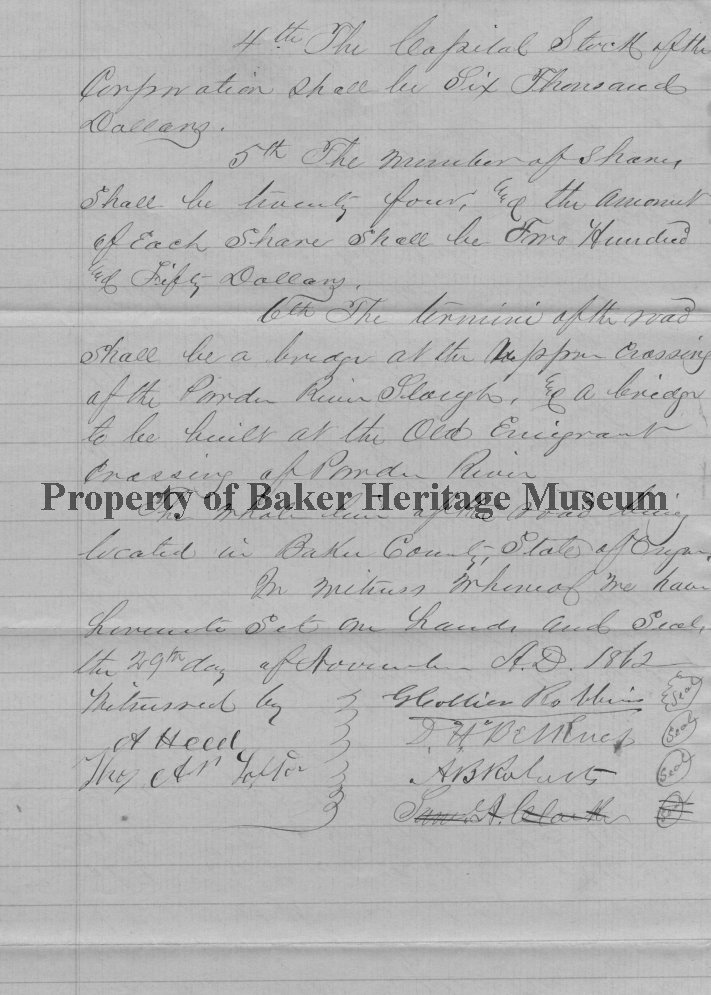 4th The Capital Stock of the
Corporation shall be Six Thousand
Dollars.
5th The number of Shares
Shall be twenty four, & the amount
of Each Share Shall be Two Hundred
& Fifty Dollars.
6th The termini of the road
shall be a bridge at the Upper crossing
of the Powder River Slough, & a bridge
to be built at the Old Emigrant
crossing of Powder River
Property of Baker Heritage Museum
The whole line of the road being
located in Baker County, State of Oregon.
In witness whereof we have
hereunto Set our hands and Seals
the 29th day of November A.D. 1862
Witnessed by G Collier Robbins Seal
A Heed D. H. Seal
A B Roberts Seal
Saml. A. Clarke Seal